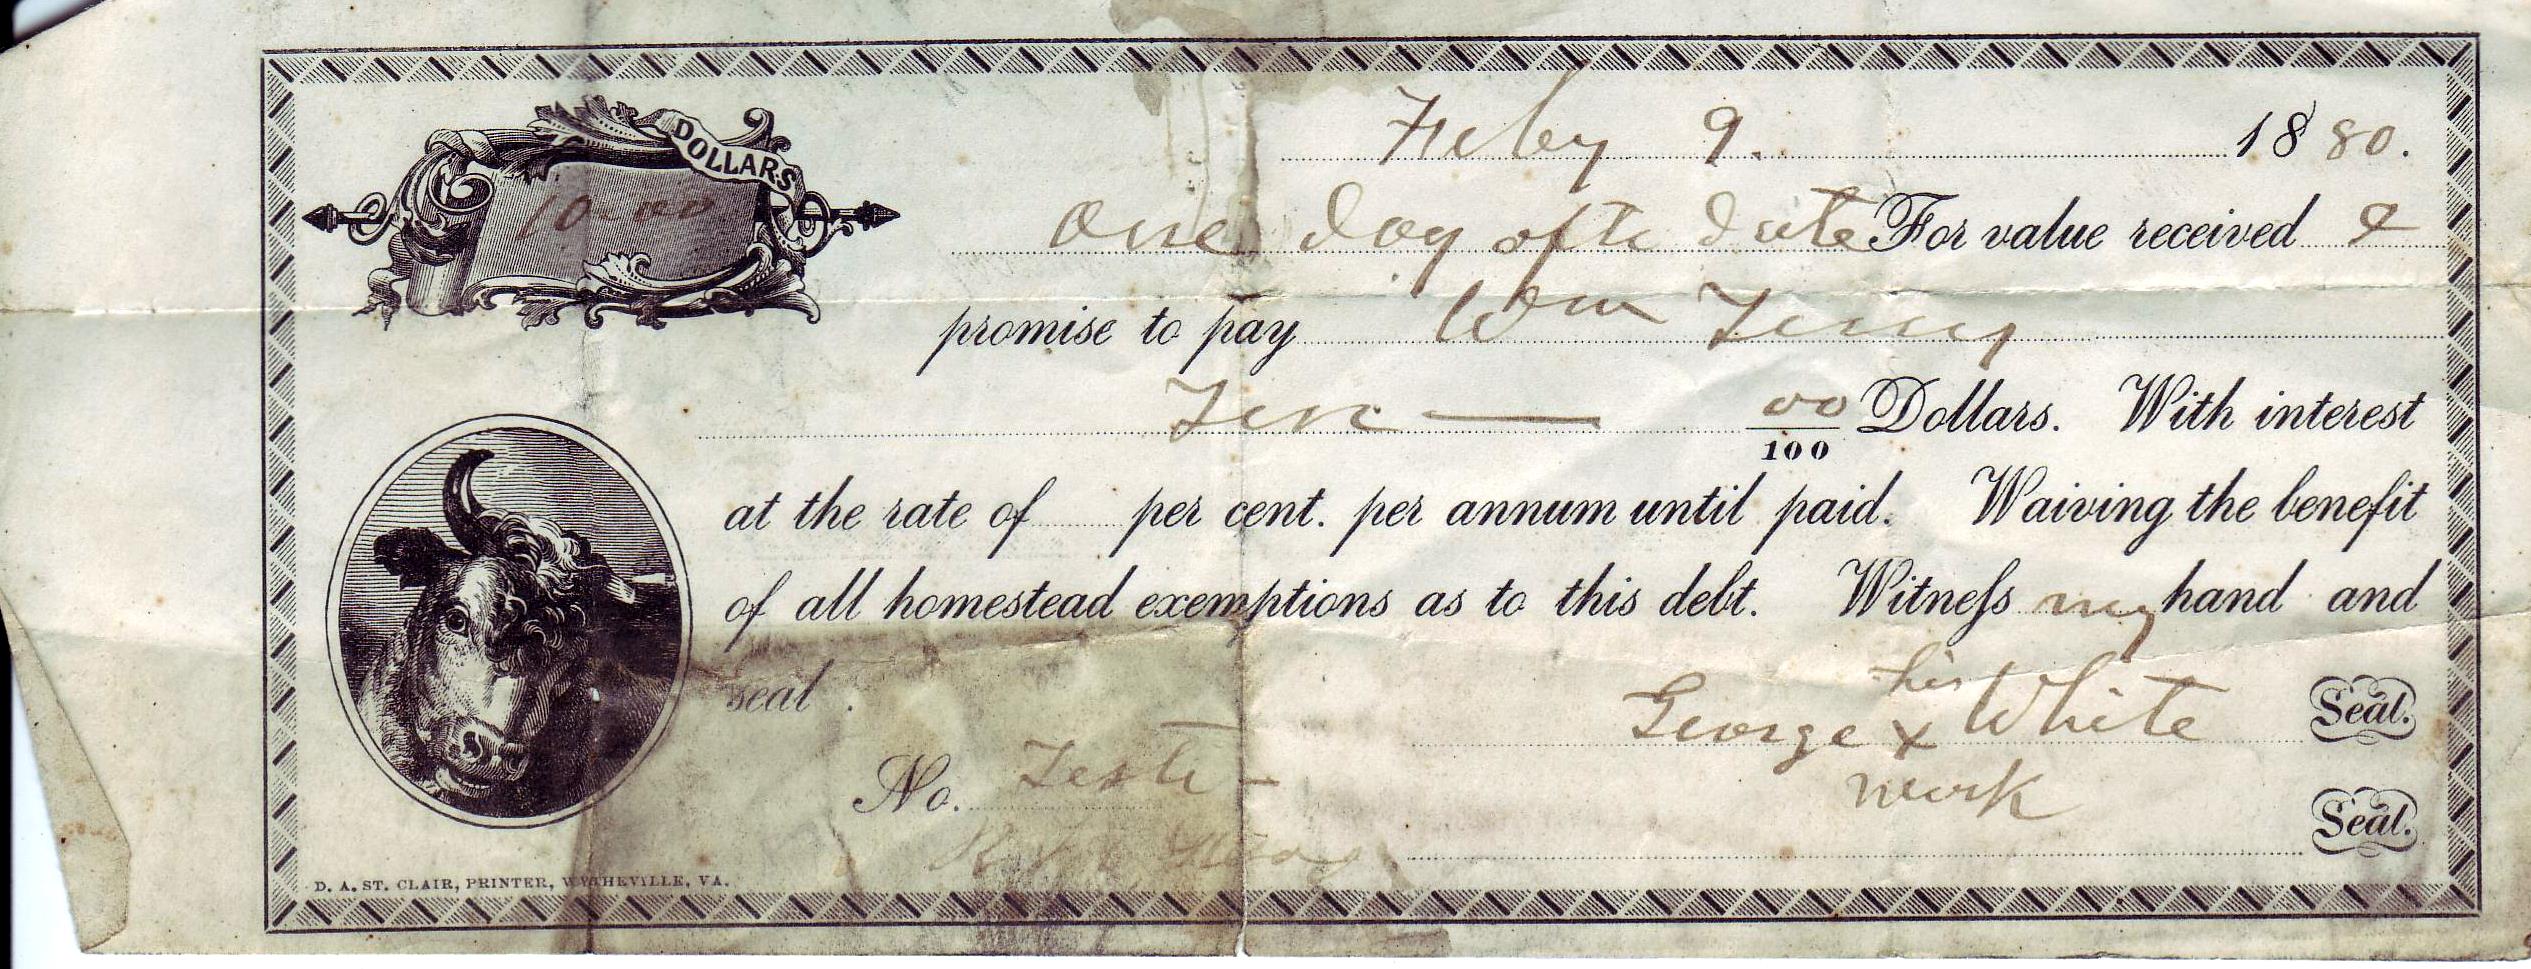 DOLLARS
10.00
Feby 9. 1880.
One day afte date For value received I
promise to pay Wm Terry
Ten — 00/100 Dollars. With interest
at the rate of per cent. per annum until paid. Waiving the benefit
of all homestead exemptions as to this debt. Witness my hand and
seal .
his
George x White Seal.
mark
No. Teste -
Seal.
D. A. ST. CLAIR, PRINTER, WYTHEVILLE, VA.